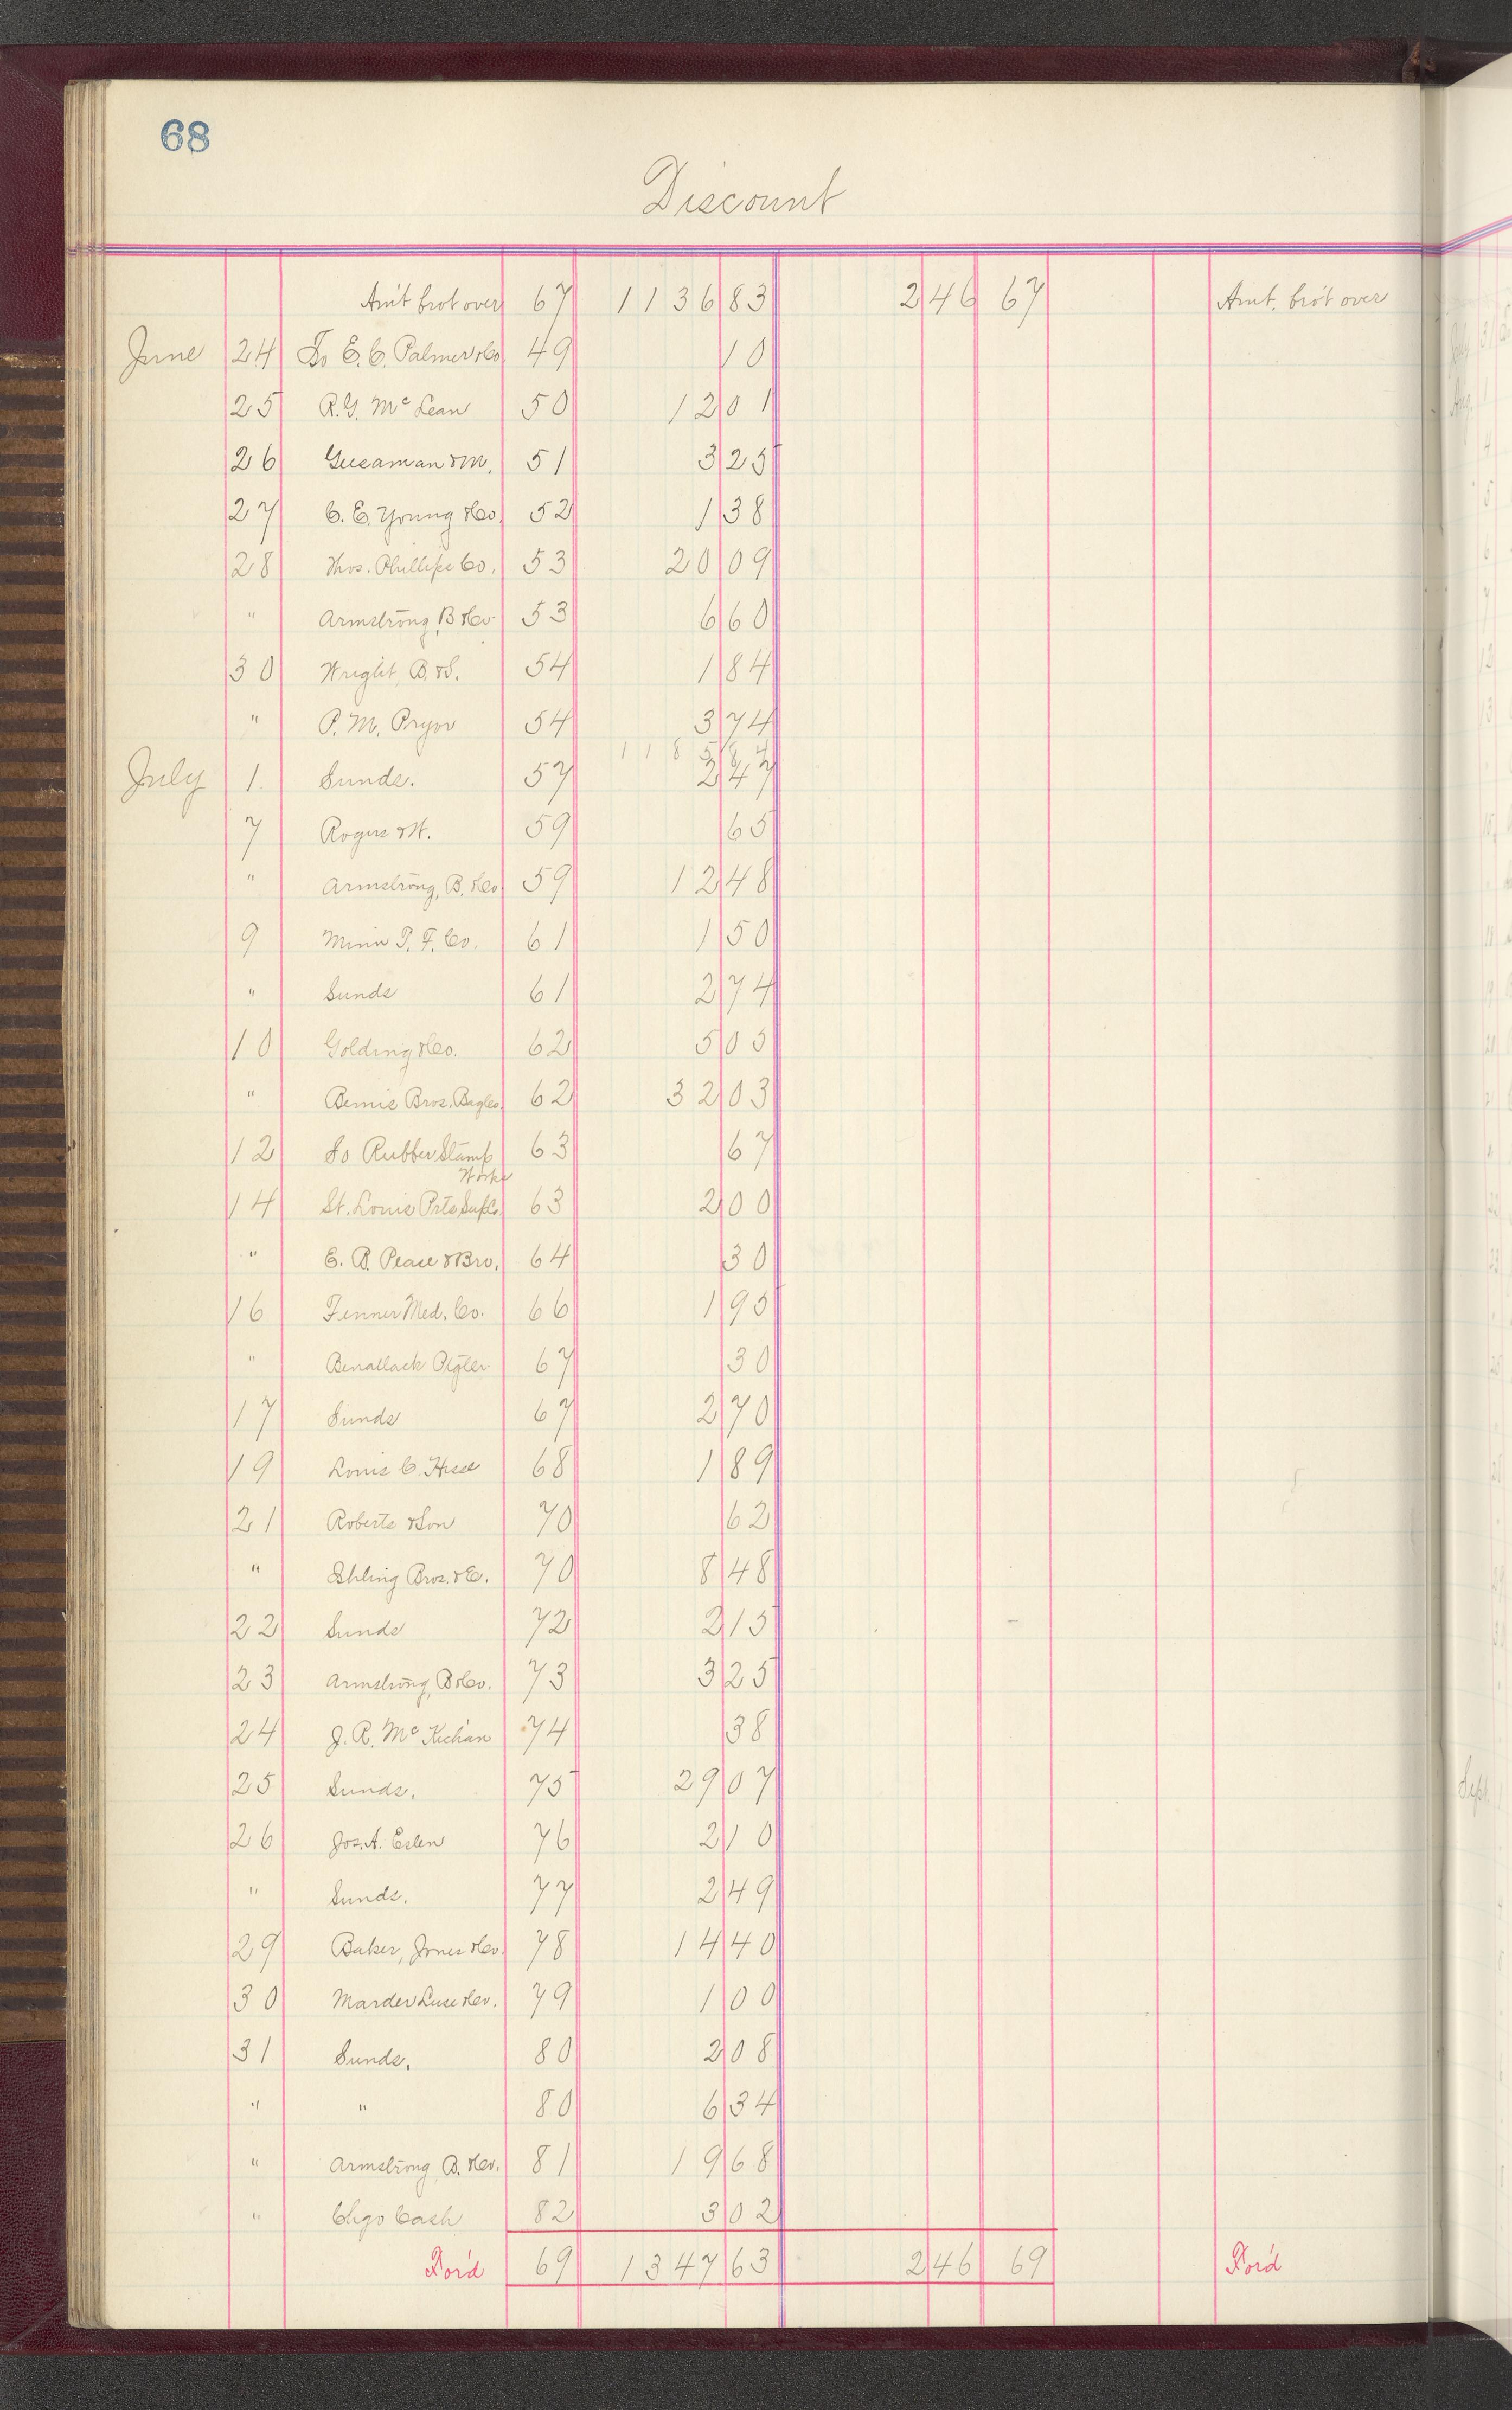 68
Discount
Am't bro't over 67 1136 83 2 46 67 Amt. bro't over
June 24 To E. C. Palmer & Co. 49 10
25 R. G. McLean 50 12 01
26 & M. 51 3 25
27 C. E. Young & Co. 52 1 38
28 Thos. Phillips Co. 53 20 09
" Armstrong, B & Co. 53 6 60
30 Wright, B. & S. 54 1 84
" P. M. Pryor 54 3 74
118 5 84
July 1 Sunds. 57 2 47
7 Rogers & W. 59 65
" Armstrong, B. & Co. 59 12 48
9 Minn T. F. Co. 61 1 50
" Sunds 61 2 74
10 Golding & Co. 62 5 05
" Bemis Bros. Bag Co. 62 32 03
12 So Rubber Stamp 63 67
Works
14 St. Louis Prts Supl. 63 2 00
" E. B. Peace & Bro. 64 30
16 Fenner Med. Co. 66 1 95
" Benallack 67 30
17 Sunds 67 2 70
19 Louis C. Hesse 68 1 89
21 Roberts & Son 70 62
" Ehling Bros. & E. 70 8 48
22 Sunds 72 2 15
23 Armstrong, B & Co. 73 3 25
24 J. R. Mc Kichan 74 38
25 Sunds. 75 29 07
26 Jos. A. Eslen 76 2 10
" Sunds. 77 2 49
29 Baker, Jones & Co. 78 14 40
30 Marder Luse & Co. 79 1 00
31 Sunds. 80 2 08
" " 80 6 34
" Armstrong, B. & Co. 81 19 68
" Chgo Cash 82 3 02
For'd 69 1347 63 2 46 69 For'd